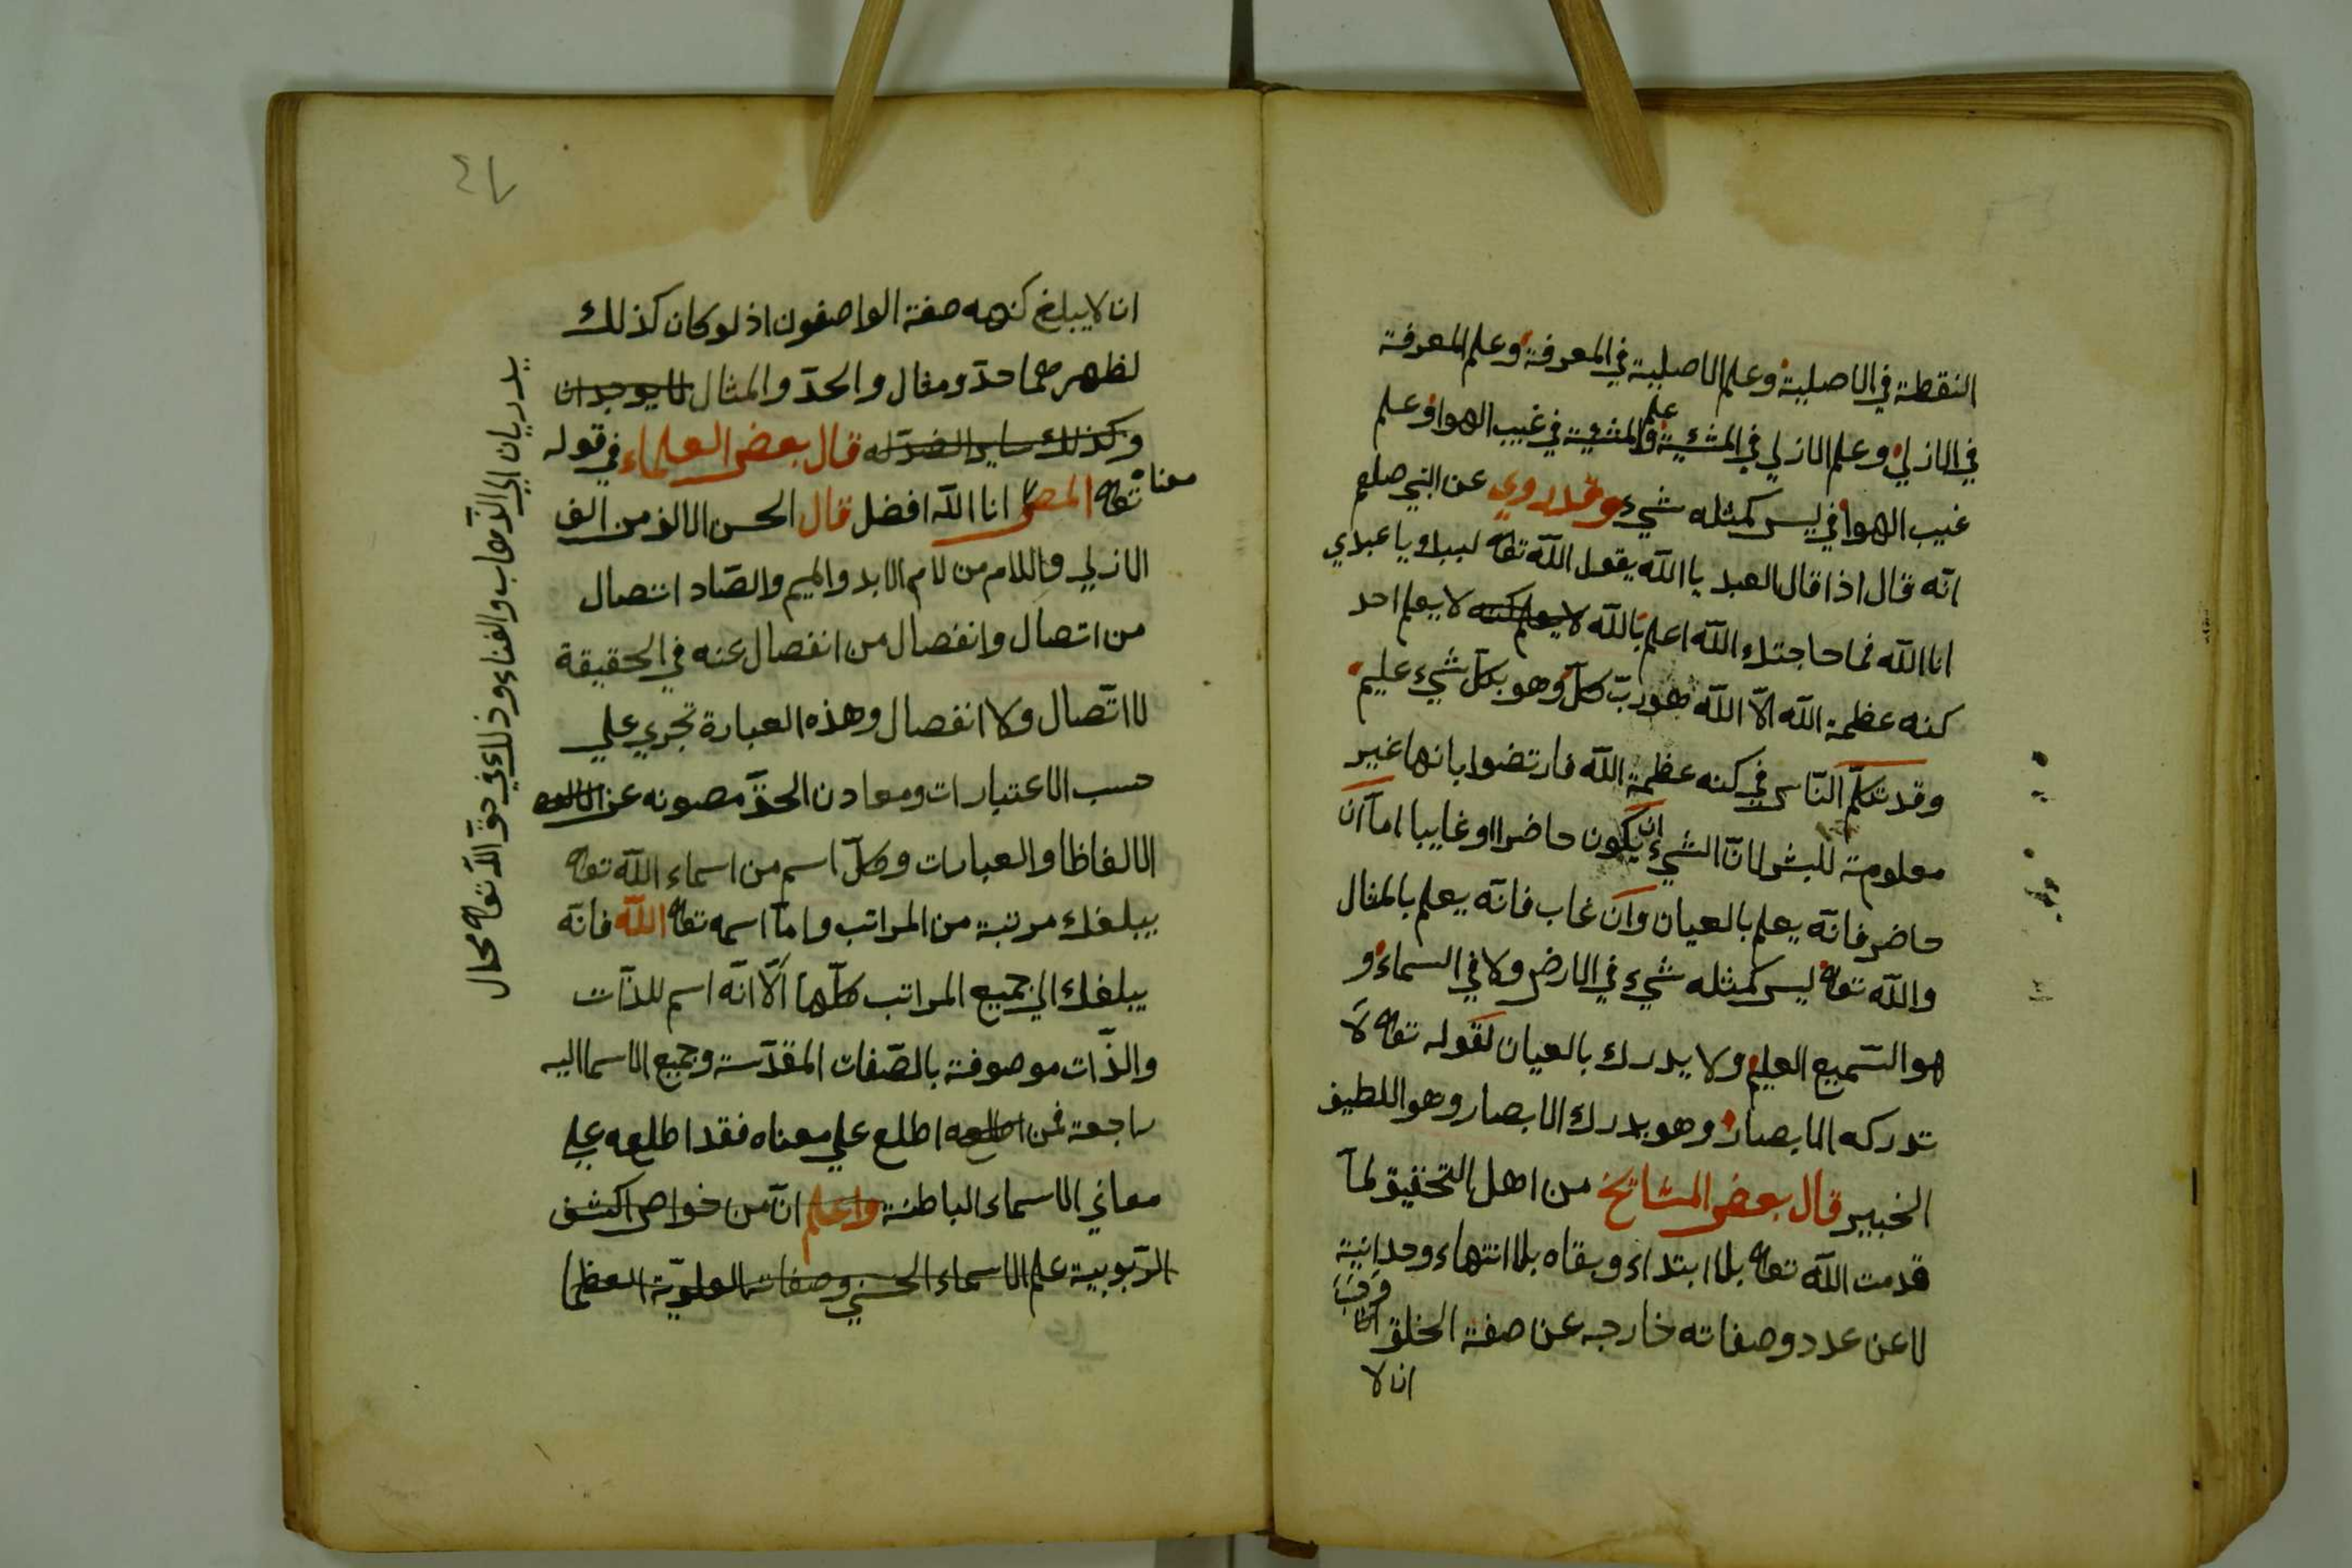 النقطة في الاصلية وعلم الاصلية في المعرفة وعلم المعرفة
في الازلي وعلم الازلي في المشئية وعلم المشية في غيب الهوا وعلم
غيب الهوا في ليس كمثله شيء وقد روي عن النبي صلعم
انّه قال اذا قال العبد يا الله يقول الله تعا لبيك يا عبدي
انا الله فما حاجتك الله اعلم بالله لا يعلم كنه لا يعلم احد
كنه عظمة الله الّا الله هو ربّ كلّ وهو بكلّ شيء عليم
وقد تكلّم النّاس في كنه عظمة الله فارتضوا بانها غير
معلومة للبشر لانّ الشيء ان يكون حاضرا او غايبا امآ ان
حاضر فانّه يعلم بالعيان وان غاب فانّه يعلم بالمثال
والله تعا ليس كمثله شيء في الارض ولا في السماء و
هو السّميع العليم ولا يدرك بالعيان لقوله تعا لا
تدركه الابصار وهو يدرك الابصار وهو اللطيف
الخبير قال بعض المشايخ من اهل التحقيق لمآ
قدمت الله تعا بلا ابتداء وبقاه بلا انتهاء وحدانية
لا عن عدد وصفاته خارجه عن صفة الخلق
ان لا
٤٧
ان لا يبلغ كنهه صفة الواصفون اذ لو كان كذلك
لظهر مما حدّ ومثال والحدّ والمثال لا يوجدان
وكذلك ساير الضدّ له قال بعض العلماء في قوله
تعا المص معناه انا الله افضل قال الحسن الالف من الف
الازلي واللام من لام الابد والميم والصّاد اتصال
من اتصال وانفصال من انفصال عنه في الحقيقة
لا اتّصال ولا انفصال وهذه العبارة تجري علي
حسب الاعتبارات ومعادن الحقّ مصونه عن
الالفاظ والعبارات وكلّ اسم من اسماء الله تعا
يبلغك مرتبة من المراتب وامآ اسمه تعا الله فانّه
يبلغك الي جميع المراتب كلّها الّا انّه اسم للذّات
والذّات موصوفة بالصّفات المقدّسة وجميع الاسما اليه
راجعة فمن اطلعه اطلع علي معناه فقد اطلعه علي
معاني الاسماء الباطنة واعلم انّ من خواص الكشف
الرّبوبية علم الاسماء الحسني وصفات العلويّة العظما
يدريان الي الذّهاب والفناء وذلك في حقّ الله تعا محال